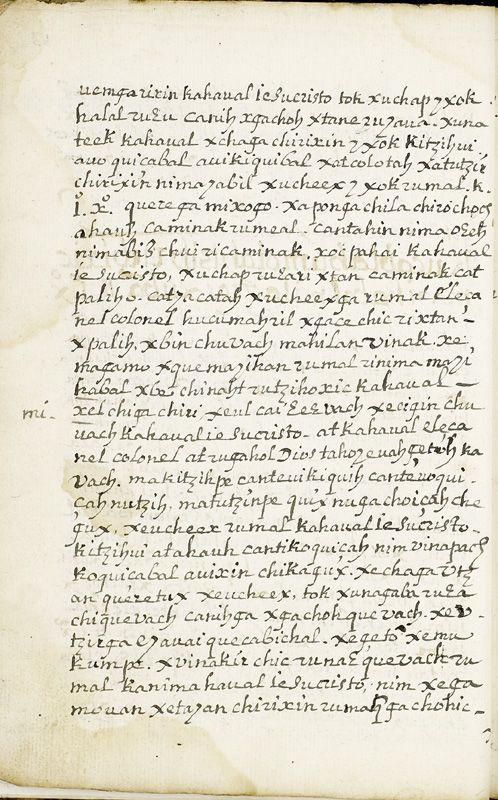 vemga rixin kahaval iesucristo tok xuchap yxok
halal ruzu canih xgachoh xtane ruyava. xuna
teek kahaval xchaga chirixin yxok kitzihvi
avo quicabal avikiquibal xatcolotah xatutzir
chirixin nimayabil xucheex yxok rumal. k.
i. x. querega mixogo. xaponga chila chirochoch
ahauh caminak rumeal. cantahin nima oɛeh
nimabiz chuiri caminak. xoc pahai kahaval
iesucristo, xuchap ruɛa rixtan caminak cat
paliho. catyacatah xucheexga rumal eleca
nel colonel hucumahril xgaçe chic rixtan-
xpalih. xbin chuvach mahilan vinak. xe
magamo xquemayihan rumal rinima mayi
habal xbe chinaht rutzihoxic kahaval-
mi- xel chiga chiri xeul cai ɛeɛvach xeciqin chu
vach kahaval iesucristo- at kahaval eleca
nel colonel at rugahol Dios tahoyevah getoh ka
vach. makitzihpe cantevikiquih cantevoqui-
cah nutzih. matutzinpe quix nugachoicah che
gux, xeucheex rumal kahaval iesucristo-
kitzihvi at ahauh cantikoquicah nim vinapach
koquicabal avixin chikagux. xechaga vtz
an queretux xeucheex, tok xunagaba ruɛa
chiquevach canihga xgachoh quevach. xev-
tzirga eyavai quecabichal. xegeto xemu
kumpe. xvinakir chic runaɛ quevach ru
mal kanimahaval iesucristo, nim xega
movan xetayan chirixin rumah gachohic-